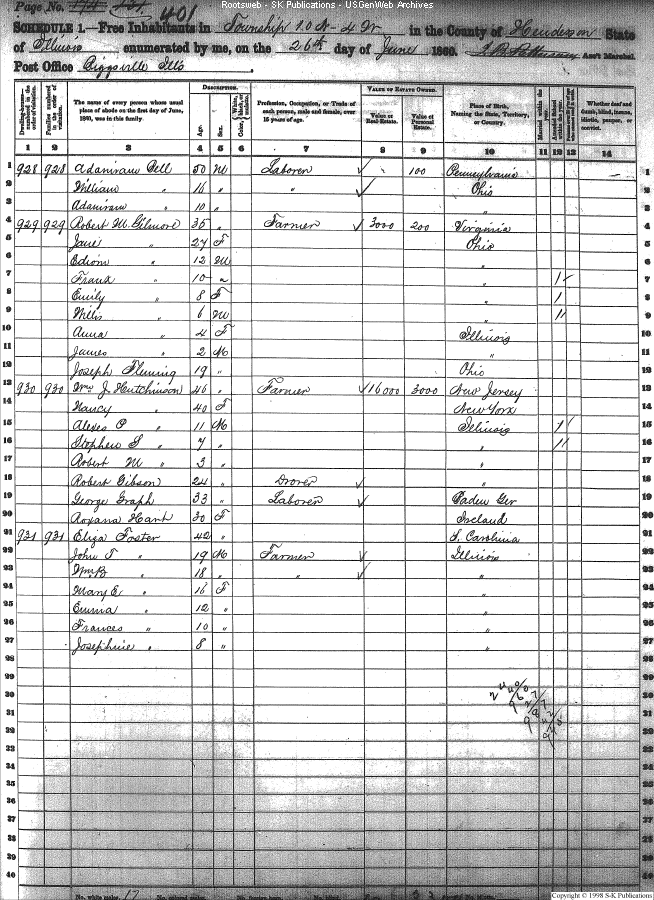 Rootsweb - SK Publications - USGenWeb Archives
Page No. 401
SCHEDULE 1.—Free Inhabitants in Township 10 N - 4 W in the County of Henderson State
of Illinois enumerated by me, on the 26th day of June 1860. Ass't Marshal.
Post Office Biggsville Ills.
DESCRIPTION. VALUE OF ESTATE OWNED.
Dwelling-houses numbered in the order of visitation. Families numbered in the order of visitation. The name of every person whose usual place of abode on the first day of June, 1860, was in this family. Age. Sex. Color, White, black, or mulatto. Profession, Occupation, or Trade of each person, male and female, over 15 years of age. Value of Real Estate. Value of Personal Estate. Place of Birth, Naming the State, Territory, or Country. Married within the year. Attended School within the year. Whether deaf and dumb, blind, insane, idiotic, pauper, or convict.
1 2 3 4 5 6 7 8 9 10 11 12 13 14
1 928 928 Adaniram Bell 50 M Laborer 100 Pennsylvania 1
2 William " 16 " " Ohio 2
3 Adaniram " 10 " " 3
4 929 929 Robert M. Gilmore 35 " Farmer 3000 200 Virginia 4
5 Jane " 27 F Ohio 5
6 " 12 M " 6
7 Frank " 10 " " 1 7
8 Emily " 8 F " 1 8
9 Willis " 6 M " 1 9
10 Anna " 4 F Illinois 10
11 James " 2 M " 11
12 Joseph Fleming 19 " Ohio 12
13 930 930 Wm J. Hutchinson 46 " Farmer 16000 3000 New Jersey 13
14 Nancy " 40 F New York 14
15 " 11 M Illinois 1 15
16 Stephen S " 7 " " 1 16
17 Robert M " 3 " " 17
18 Robert Gibson 24 " Drover " 18
19 George Graph 33 " Laborer Baden Ger 19
20 Roxana Hart 30 F Ireland 20
21 931 931 Eliza Foster 42 " S. Carolina 21
22 John T " 19 M Farmer Illinois 22
23 Wm B " 18 " " " 23
24 Mary E " 16 F " 24
25 Emma " 12 " " 25
26 Frances " 10 " " 26
27 Josephine " 8 " " 27
28 28
29 29
30 30
31 31
32 32
33 33
34 34
35 35
36 36
37 37
38 38
39 39
40 40
No. white males, 17
Copyright © 1998 S-K Publications